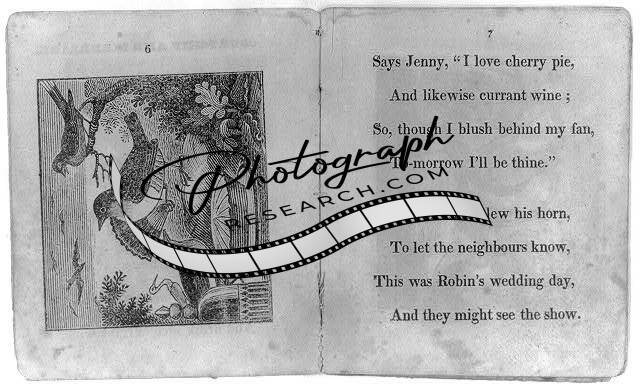 6
7
Says Jenny, "I love cherry pie,
And likewise currant wine;
So, though I blush behind my fan,
To-morrow I'll be thine."
his horn,
To let the neighbours know,
This was Robin's wedding day,
And they might see the show.
Photograph
RESEARCH.COM